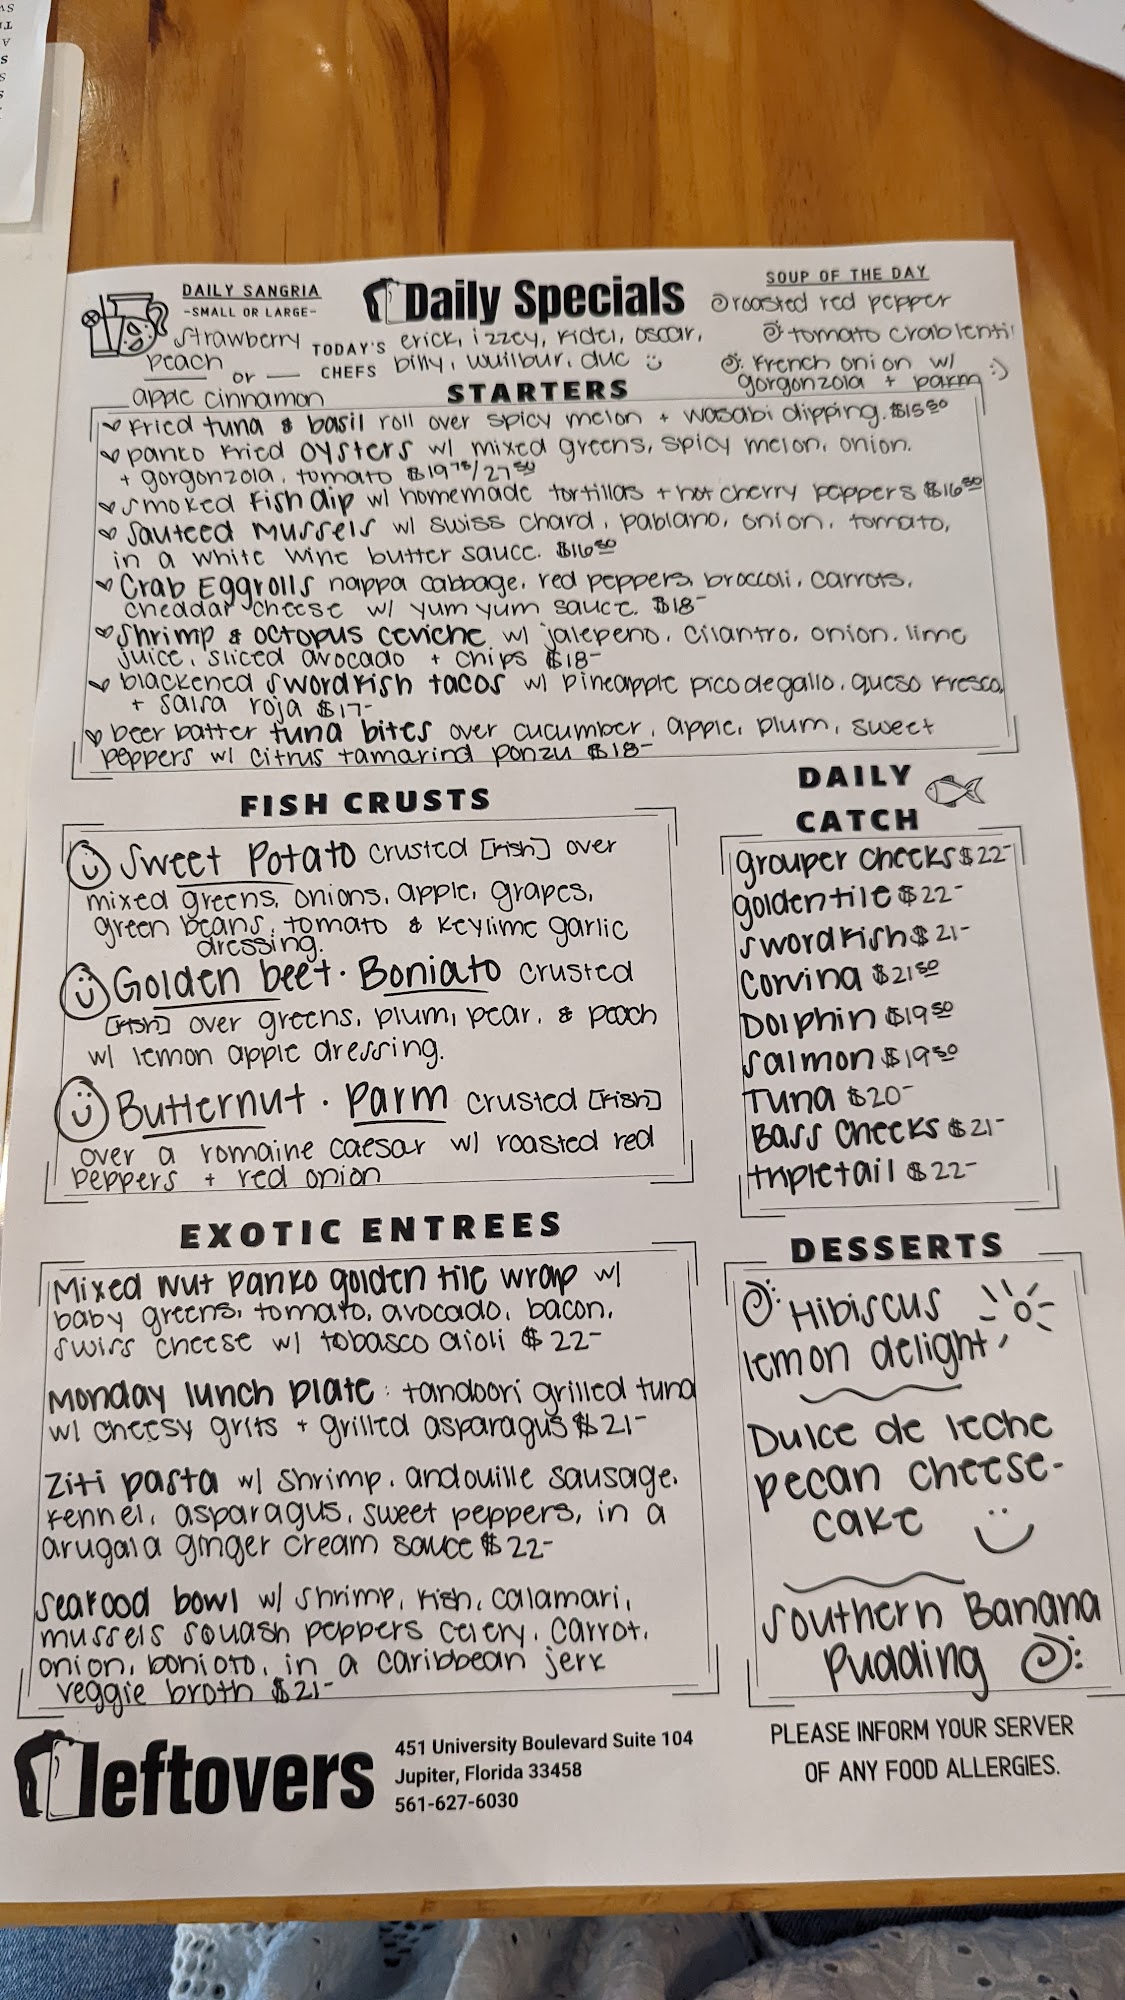 DAILY SANGRIA
-SMALL OR LARGE-
strawberry
peach
or
apple cinnamon
Daily Specials
TODAY'S CHEFS
erick, izzey, fidel, oscar,
billy, wuilbur, duc
SOUP OF THE DAY
roasted red pepper
tomato crab lenti
french onion w/
gorgonzola + parm :)
STARTERS
fried tuna & basil roll over spicy melon + wasabi dipping. $15.50
panko fried oysters w/ mixed greens, spicy melon, onion.
+ gorgonzola, tomato $19.75/27.50
smoked fish dip w/ homemade tortillas + hot cherry peppers $16.50
sauteed mussels w/ swiss chard, pablano, onion, tomato,
in a white wine butter sauce. $16.50
Crab Eggrolls nappa cabbage, red peppers, broccoli, carrots,
cheddar cheese w/ yum yum sauce. $18-
shrimp & octopus ceviche w/ jalepeno, cilantro, onion, lime
juice, sliced avocado + chips $18-
blackened swordfish tacos w/ pineapple pico de gallo, queso fresco,
+ salsa roja $17-
beer batter tuna bites over cucumber, apple, plum, sweet
peppers w/ citrus tamarind ponzu $18-
FISH CRUSTS
sweet potato crusted [fish] over
mixed greens, onions, apple, grapes,
green beans, tomato & keylime garlic
dressing.
Golden beet · Boniato crusted
[fish] over greens, plum, pear, & peach
w/ lemon apple dressing.
Butternut · Parm crusted [fish]
over a romaine caesar w/ roasted red
peppers + red onion
DAILY
CATCH
grouper cheeks $22-
golden tile $22-
swordfish $21-
Corvina $21.50
Dolphin $19.50
salmon $19.50
Tuna $20-
Bass cheeks $21-
tripletail $22-
EXOTIC ENTREES
Mixed nut panko golden tile wrap w/
baby greens, tomato, avocado, bacon,
swiss cheese w/ tobasco aioli $22-
Monday lunch plate: tandoori grilled tuna
w/ cheesy grits + grilled asparagus $21-
Ziti pasta w/ shrimp, andouille sausage,
fennel, asparagus, sweet peppers, in a
arugala ginger cream sauce $22-
seafood bowl w/ shrimp, fish, calamari,
mussels squash peppers celery, carrot,
onion, bonioto, in a caribbean jerk
veggie broth $21-
DESSERTS
Hibiscus
lemon delight
Dulce de leche
pecan cheese-
cake
southern Banana
Pudding
leftovers
451 University Boulevard Suite 104
Jupiter, Florida 33458
561-627-6030
PLEASE INFORM YOUR SERVER
OF ANY FOOD ALLERGIES.